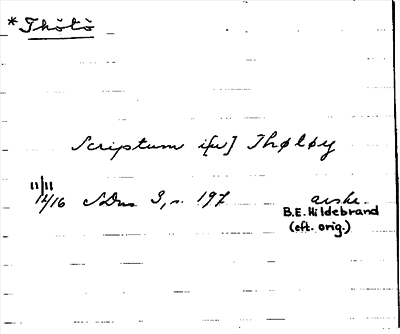 *Thölö
Scriptum i[n] Thøløy
11/11 1416 SDns 3, s. 197 avskr.
B.E. Hildebrand
(eft. orig.)